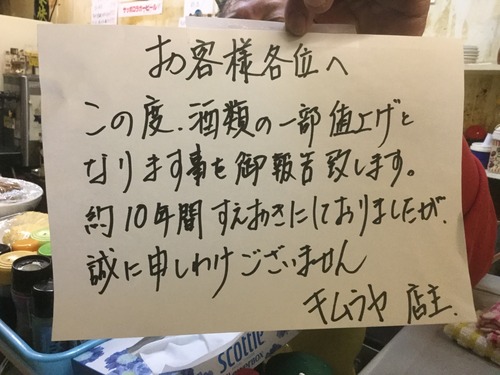 お客様各位へ
この度、酒類の一部値上げと
なります事を御報告致します。
約10年間すえおきにしておりましたが、
誠に申しわけございません
キムラヤ 店主.
scottie